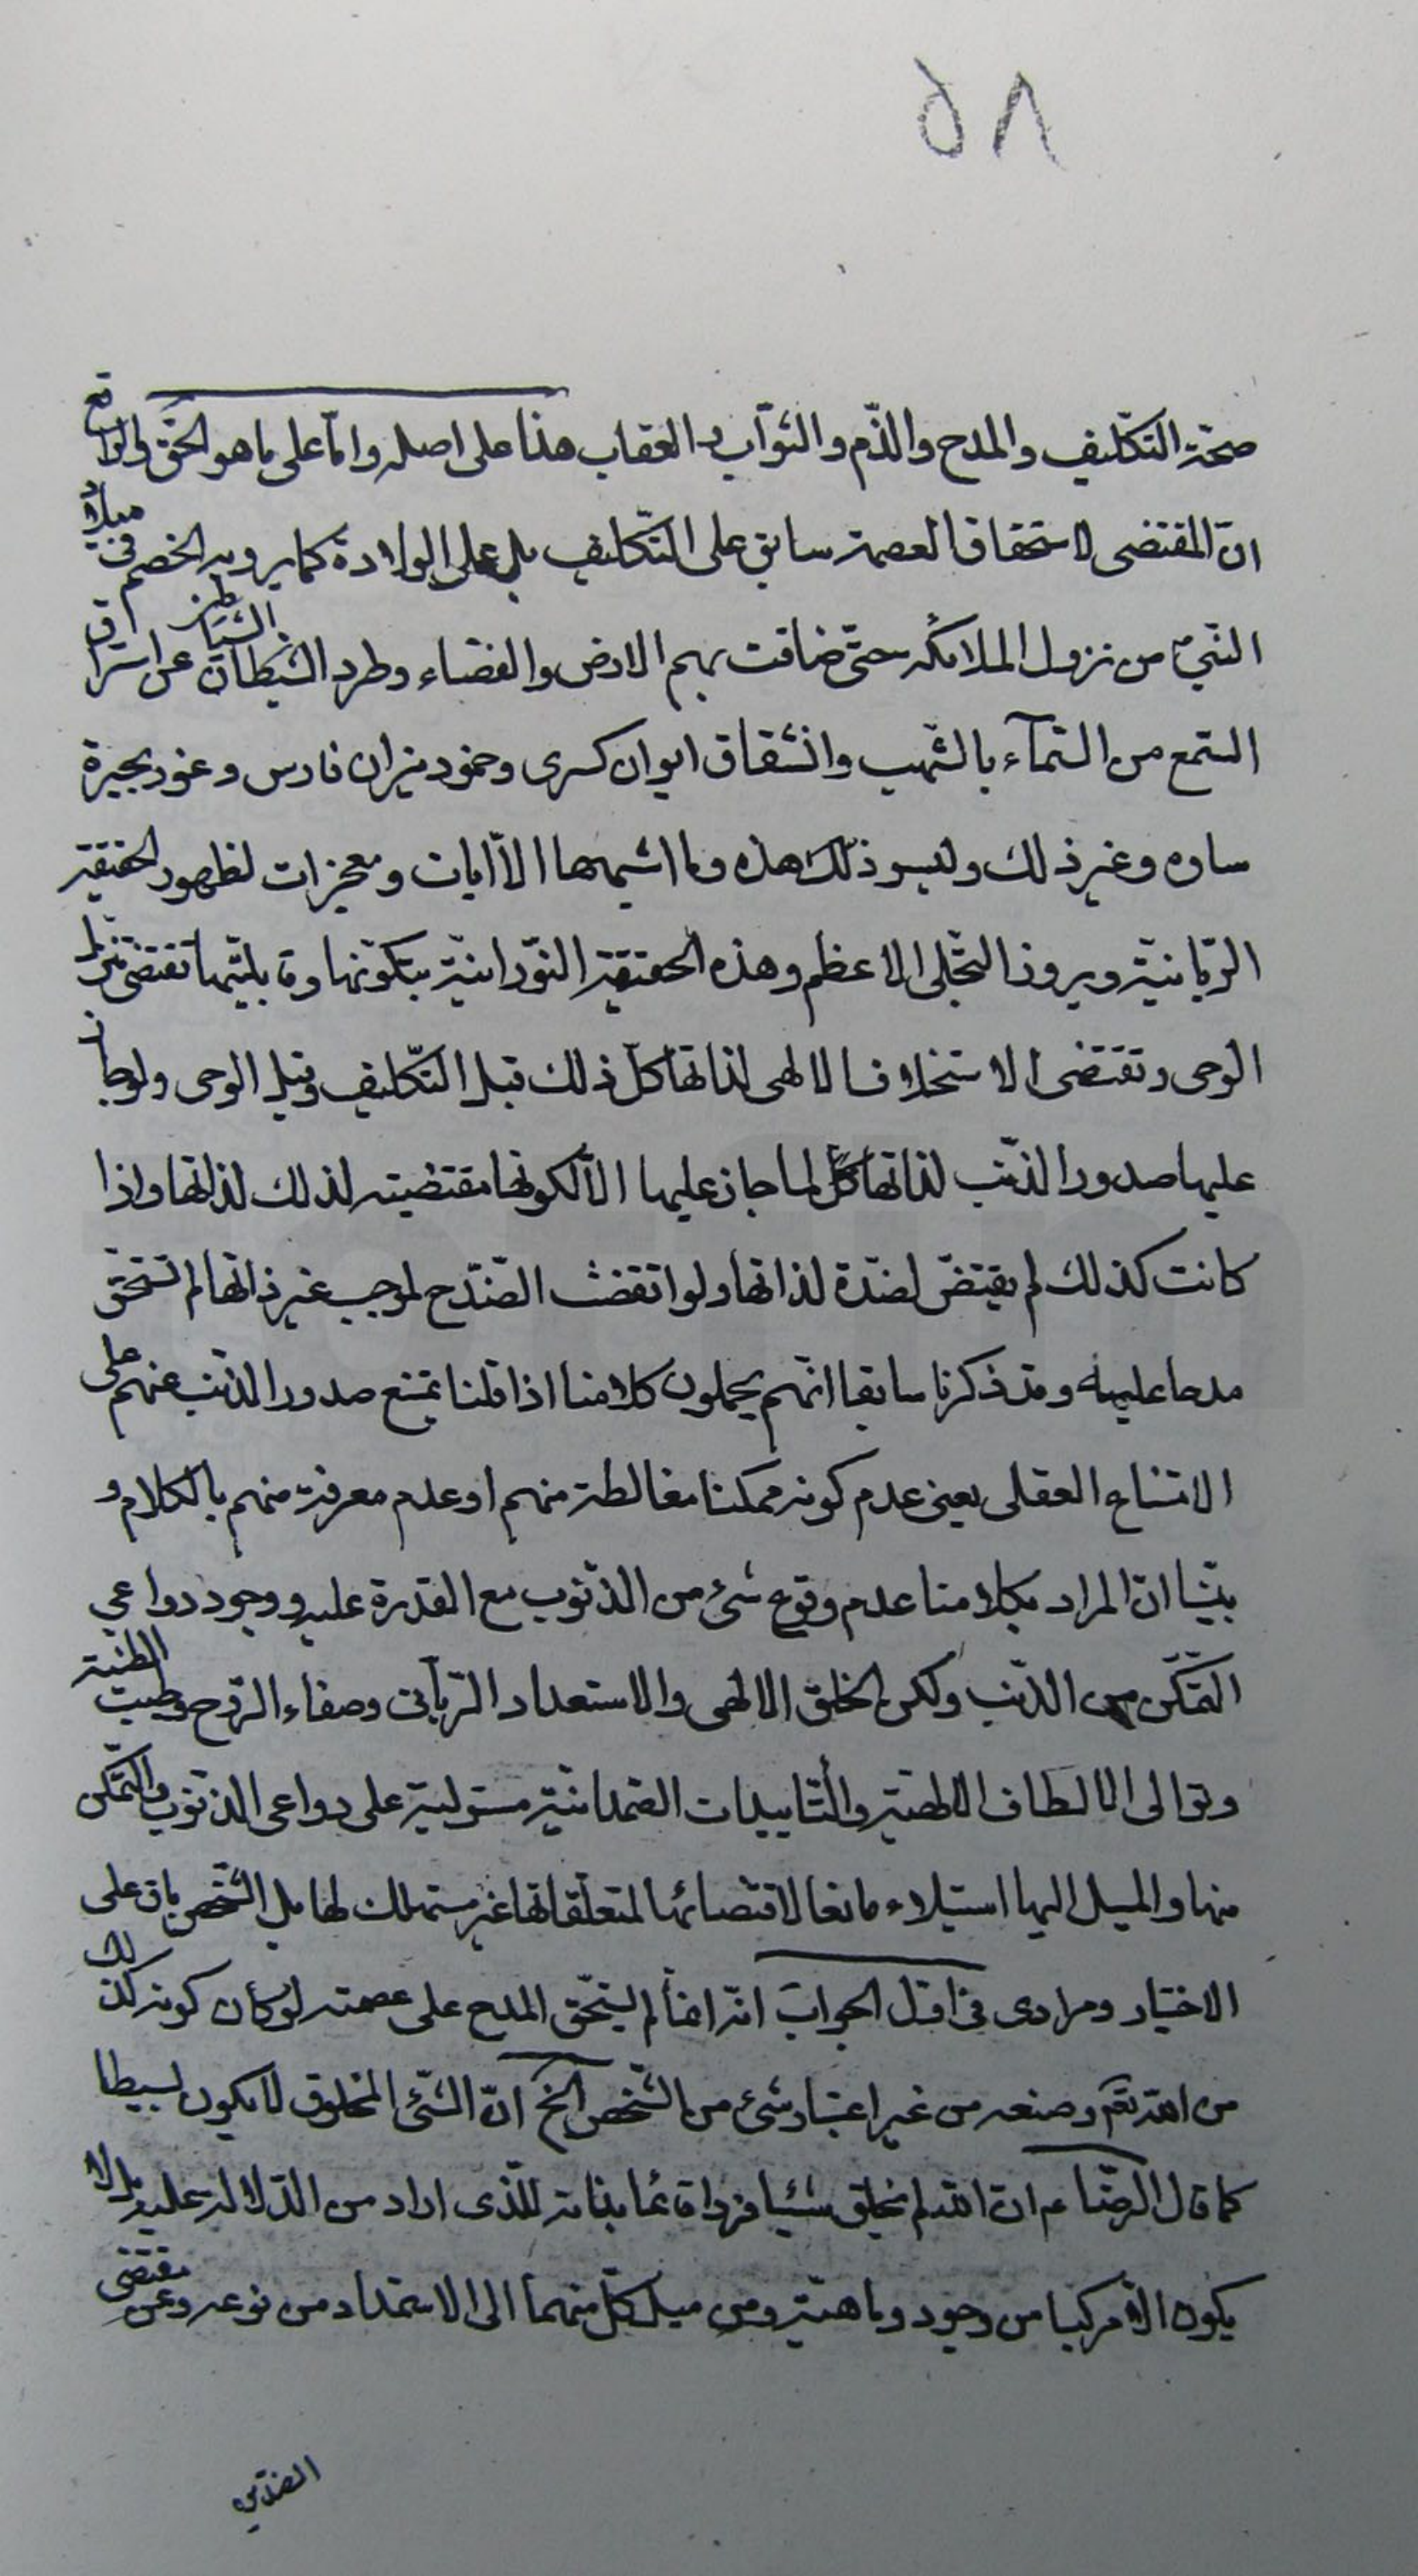 ٥٨
صحّة التكليف والمدح والذّم والثوّاب والعقاب هذا على اصله وامّا على ما هو الحقّ والواقع
انّ المقتضى لاستحقاق العصمة سابق على التّكليف بل على الولادة كما يرويه الخصم فى ميلاد
النّبىّ من نزول الملائكة حتّى ضاقت بهم الارض والفضاء وطرد الشيطان الشياطين عن استراق
السّمع من السّمآء بالشّهب وانشقاق ايوان كسرى وخمود نيران فارس وغور بحيرة
ساوه وغير ذلك وليس ذلك هذه وما اشبهها الّا ايات ومعجزات لظهور الحقيقة
الرّبانيّة وبروز التجّلى الاعظم وهذه الحقيقة النّورانيّة بتكوّنها وقابليّتها تقتضى نزول
الوحى وتقتضى الاستخلاف الالهى لذاتها كلّ ذلك قبل التّكليف وقبل الوحى ولو جاز
عليها صدور الذّنب لذاتها كلّ لما جاز عليها الّا لكونها مقتضية لذلك لذاتها واذا
كانت كذلك لم يقتض لضدّه لذاتها ولو اتقضت الضّدّ ح لموجب غير ذاتها لم تستحق
مدحا عليه وقد ذكرنا سابقا انّهم يحملون كلامنا اذا قلنا تمتنع صدور الذّنب عنهم على
الامتناع العقلى يعنى عدم كونه ممكنا مغالطة منهم او عدم معرفة منهم بالكلام و
بيّنا انّ المراد بكلامنا عدم وقوع شئ من الذّنوب مع القدرة عليه ووجود دواعي
التّمكّن من الذّنب ولكن الخلق الالهى والاستعداد الرّبّانى وصفاء الرّوح وطيب الطّينة
وتوالى الالطاف الالهيّة والتّاييدات الصّمدانيّة مستولية على دواعى الذنوب والتّمكّن
منها والميل اليها استيلاء مانعا لاقتضائها لمتعلّقاتها غير مستهلك لها بل الشّخص باق على
الاختيار ومرادى فى اوّل الجواب انّه انّما لم يستحقّ المدح على عصمته لو كان كونه كذلك
من الله تعم وصنعه من غير اعتبار شئ من الشّخص الخ انّ الشّئ المخلوق لا يكون بسيطا
كما قال الرّضا ع ان الله لم يخلق شيئا فردا قائما بذاته للّذى اراد من الدّلالة عليه بل لا
يكون الّا مركبا من وجود وماهيّة ومن ميل كلّ منهما الى الاستمداد من نوعه وعن مقتضى
الضدّين